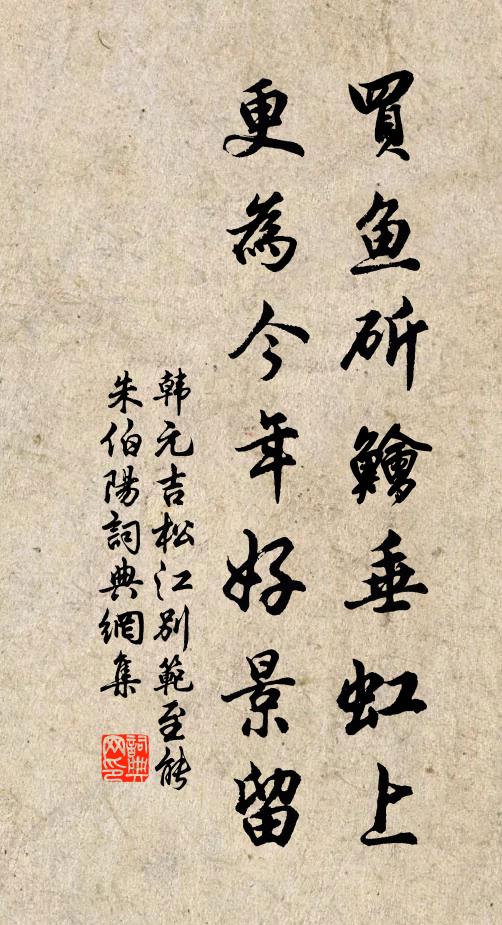 買鱼斫鱠垂虹上
更為今年好景留
韩元吉松江别範至能
朱伯陽詞典網集
詞典
网印